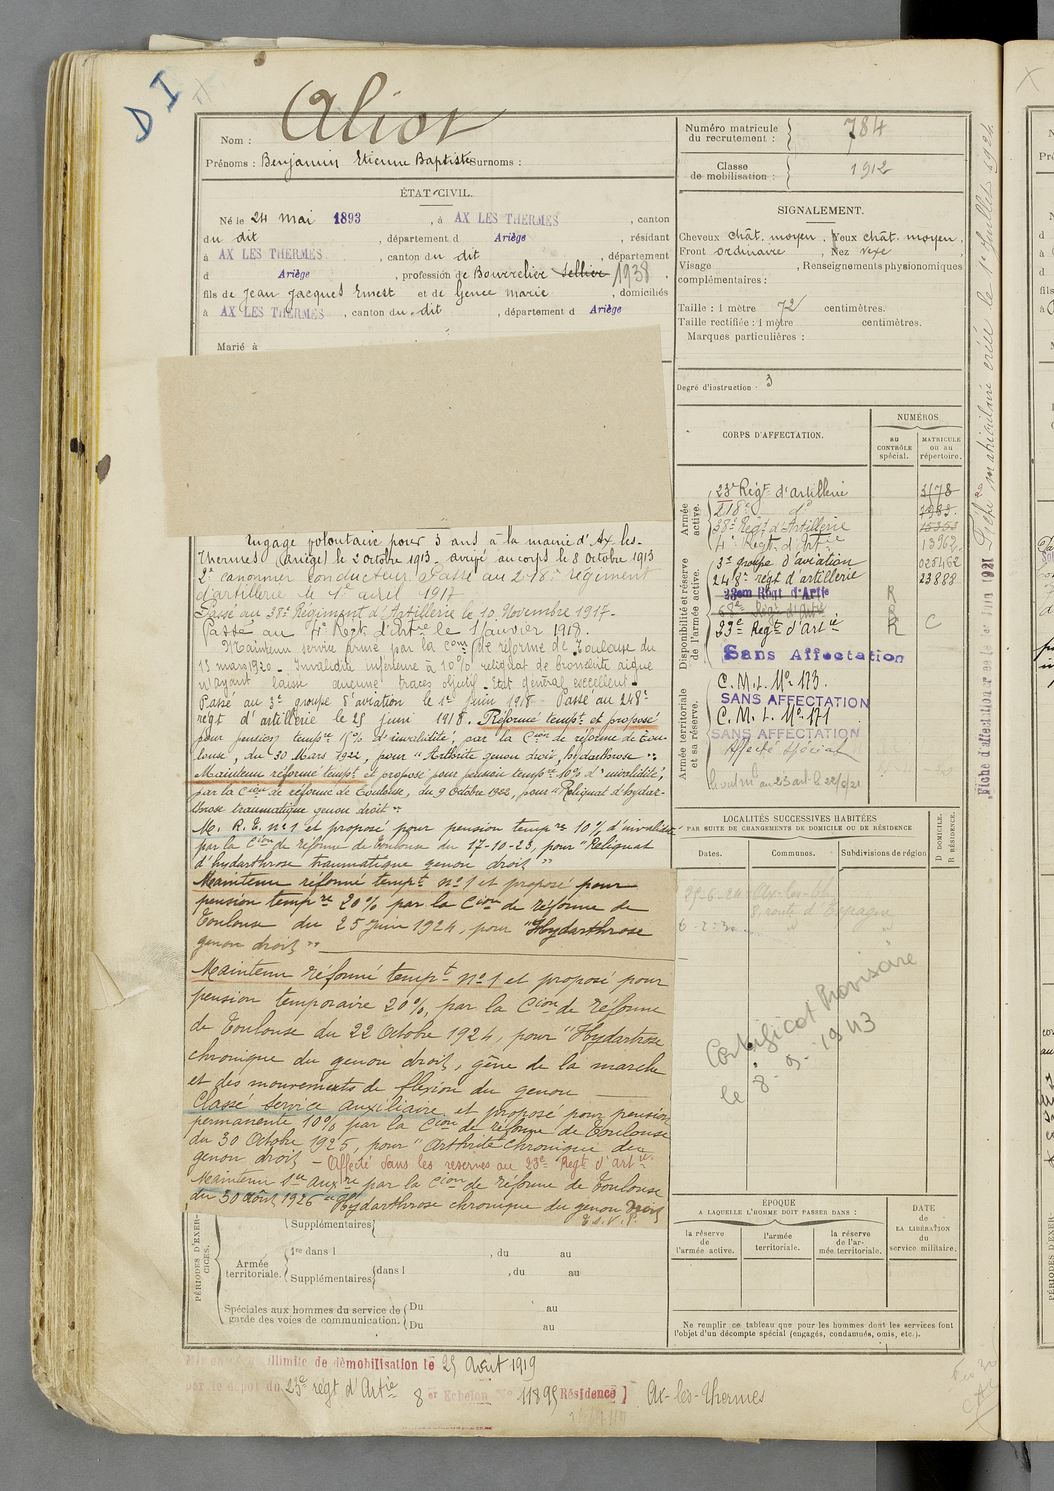 D I
Nom : Aliot
Prénoms : Benjamin Etienne Baptiste Surnoms :
ÉTAT CIVIL.
Né le 24 mai 1893, à AX LES THERMES, canton
du dit, département d Ariège, résidant
à AX LES THERMES, canton du dit, département
d Ariège, profession de Bourrelier Sellier 1938.
fils de Jean Jacques Ernest et de Gence Marie, domiciliés
à AX LES THERMES, canton du dit, département d Ariège
Marié à
Engagé volontaire pour 3 ans à la mairie d'Ax-les-
Thermes (Ariège) le 2 octobre 1913 arrivé au corps le 8 octobre 1913
2e canonnier conducteur. Passé au 218e régiment
d'artillerie le 1er avril 1917
Passé au 38e Régiment d'Artillerie le 10 Novembre 1917.
Passé au 4e Régt d'Artie le 1 Janvier 1918.
Maintenu service armé par la Cion de réforme de Toulouse du
13 mars 1920 - Invalidité inférieure à 10% reliquat de bronchite aigue
n'ayant laissé aucune traces objectif. Etat général excellent.
Passé au 3e groupe d'aviation le 1er Juin 1918 - Passé au 248e
régt d'artillerie le 25 juin 1918. Réformé tempt et proposé
pour pension tempre 15% d'invalidité, par la Cion de réforme de Tou-
louse, du 30 Mars 1922, pour "Arthrite genou droit, hydarthrose".
Maintenu réformé tempt et proposé pour pension tempre 10% d'invalidité,
par la Cion de réforme de Toulouse, du 9 Octobre 1922, pour "Reliquat d'hydar-
throse traumatique genou droit".
M. R. T. n°1 et proposé pour pension tempre 10% d'invalidité
par la Cion de réforme de Toulouse du 17-10-23, pour "Reliquat
d'hydarthrose traumatique genou droit"
Maintenu réformé tempt n°1 et proposé pour
pension tempre 20% par la Cion de réforme de
Toulouse du 25 Juin 1924, pour "Hydarthrose
genou droit"
Maintenu réformé tempt n°1 et proposé pour
pension temporaire 20%, par la Cion de réforme
de Toulouse du 22 Octobre 1924, pour "Hydartrose
chronique du genou droit, gêne de la marche
et des mouvements de flexion du genou
Classé Service auxiliaire et proposé pour pension
permanente 10% par la Cion de réforme de Toulouse
du 30 Octobre 1925, pour "Arthrite chronique du
genou droit - Affecté dans les réserves au 23e Régt d'artie
Maintenu Sce Auxre par la Cion de réforme de Toulouse
du 30 août 1926 "Hydarthrose chronique du genou droit
T.S.V.P.
PÉRIODES D'EXER-
CICES.
Supplémentaires
Armée
territoriale.
1re dans l , du au
Supplémentaires dans l , du au
Spéciales aux hommes du service de
garde des voies de communication.
Du au
Du au
illimité de démobilisation le 25 Août 1919
par le dépôt du 23e régt d'Artie 8 er Echelon No 11895 Résidence ] Ax-les-Thermes
Numéro matricule
du recrutement : 784
Classe
de mobilisation : 1912
SIGNALEMENT.
Cheveux chât. moyen, Yeux chât. moyen,
Front ordinaire, Nez vexe,
Visage , Renseignements physionomiques
complémentaires :
Taille : 1 mètre 72 centimètres.
Taille rectifiée : 1 mètre centimètres.
Marques particulières :
Degré d'instruction : 3
CORPS D'AFFECTATION.
NUMÉROS
au
CONTRÔLE
spécial.
MATRICULE
ou au
répertoire.
Armée
active.
23e Régt d'artillerie 3178
218e do 7983
38e Régt d'Artillerie 15363
4e Régt d'Artie 13967
Disponibilité et réserve
de l'armée active.
3e groupe d'aviation 028462
248e régt d'artillerie 23888
23em Régt d'Artie R
68e Régt d'Artie R
23e Régt d'Artie R C
Sans Affectation
Armée territoriale
et sa réserve.
C. M. I. No 173.
SANS AFFECTATION
C. M. I. No 171
SANS AFFECTATION
Affecté Spécial
au 23 art. le 22/6/21
LOCALITÉS SUCCESSIVES HABITÉES
PAR SUITE DE CHANGEMENTS DE DOMICILE OU DE RÉSIDENCE
D DOMICILE.
R RÉSIDENCE.
Dates. Communes. Subdivisions de région
25-6-24 Ax-les-Th.
8, route d'Espagne
6-2-30
Certificat Provisoire
le 8-9-1943
ÉPOQUE
A LAQUELLE L'HOMME DOIT PASSER DANS :
DATE
de
LA LIBÉRATION
du
service militaire.
la réserve
de
l'armée active.
l'armée
territoriale.
la réserve
de l'ar-
mée territoriale.
Ne remplir ce tableau que pour les hommes dont les services font
l'objet d'un décompte spécial (engagés, condamnés, omis, etc.).
Fiche d'affectation créée le 1er Juin 1921
Fiche matriculaire créée le 1er Juillet 1924